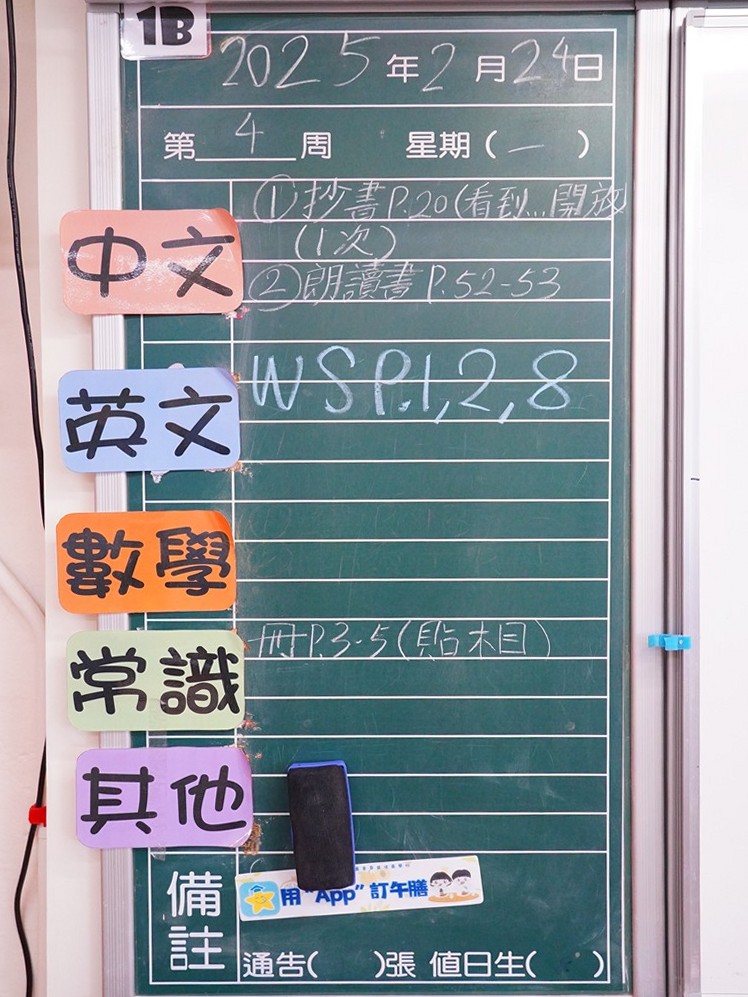 1B
2025年2月24日
第4周 星期(一)
中文
①抄書P.20(看到...開放
(1次)
②朗讀書P.52-53
英文
WS P.1,2,8
數學
常識
冊P.3-5(貼相)
其他
用“App”訂午膳
備註
通告( )張 值日生( )